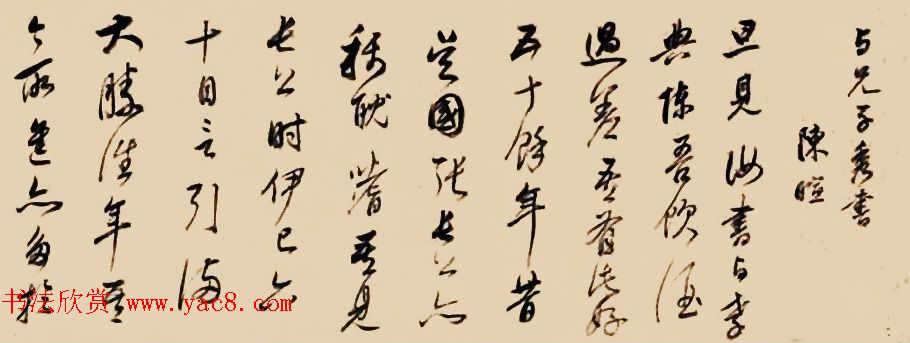 与兄子秀書
陳暄
旦見汝書与孝
典陳吾飲酒
過差吾有此好
五十餘年昔
吳國張長公亦
稱耽嗜吾見
長公时伊已六
十自言引滿
大勝往年吾
今所進亦多於
书法欣赏 www.yac8.com